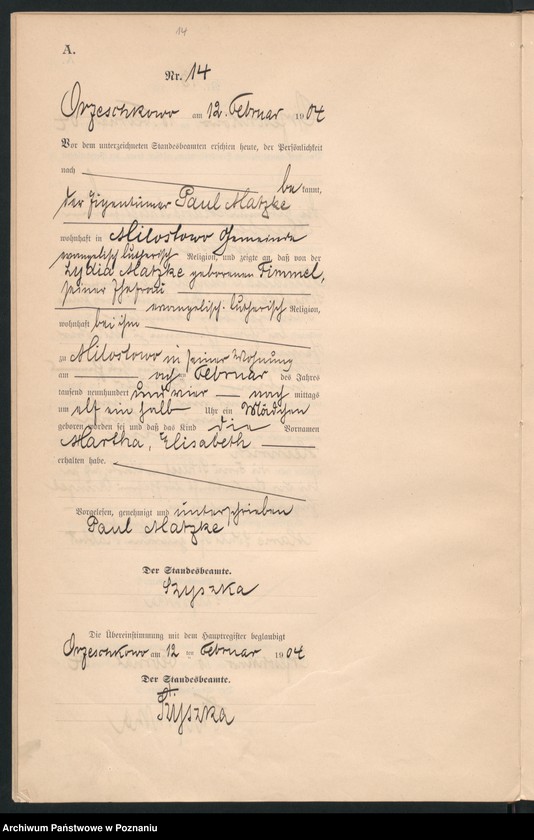 14
A.
Nr. 14
Orzeschkowo am 12. Februar 1904
Vor dem unterzeichneten Standesbeamten erschien heute, der Persönlichkeit
nach be kannt,
der Eigentümer Paul Matzke
wohnhaft in Milostowo Gemeinde
evangelisch lutherisch Religion, und zeigte an, daß von der
Lydia Matzke geborenen Fimmel,
seiner Ehefrau
evangelisch-lutherisch Religion,
wohnhaft bei ihm
zu Milostowo in seiner Wohnung
am Februar des Jahres
tausend neunhundert und vier nach mittags
um elf ein halb Uhr ein Mädchen
geboren worden sei und daß das Kind die Vornamen
Martha, Elisabeth
erhalten habe.
Vorgelesen, genehmigt und unterschrieben
Paul Matzke
Der Standesbeamte.
Szyszka
Die Übereinstimmung mit dem Hauptregister beglaubigt
Orzeschkowo am 12 ten Februar 1904
Der Standesbeamte.
Szyszka
Archiwum Państwowe w Poznaniu